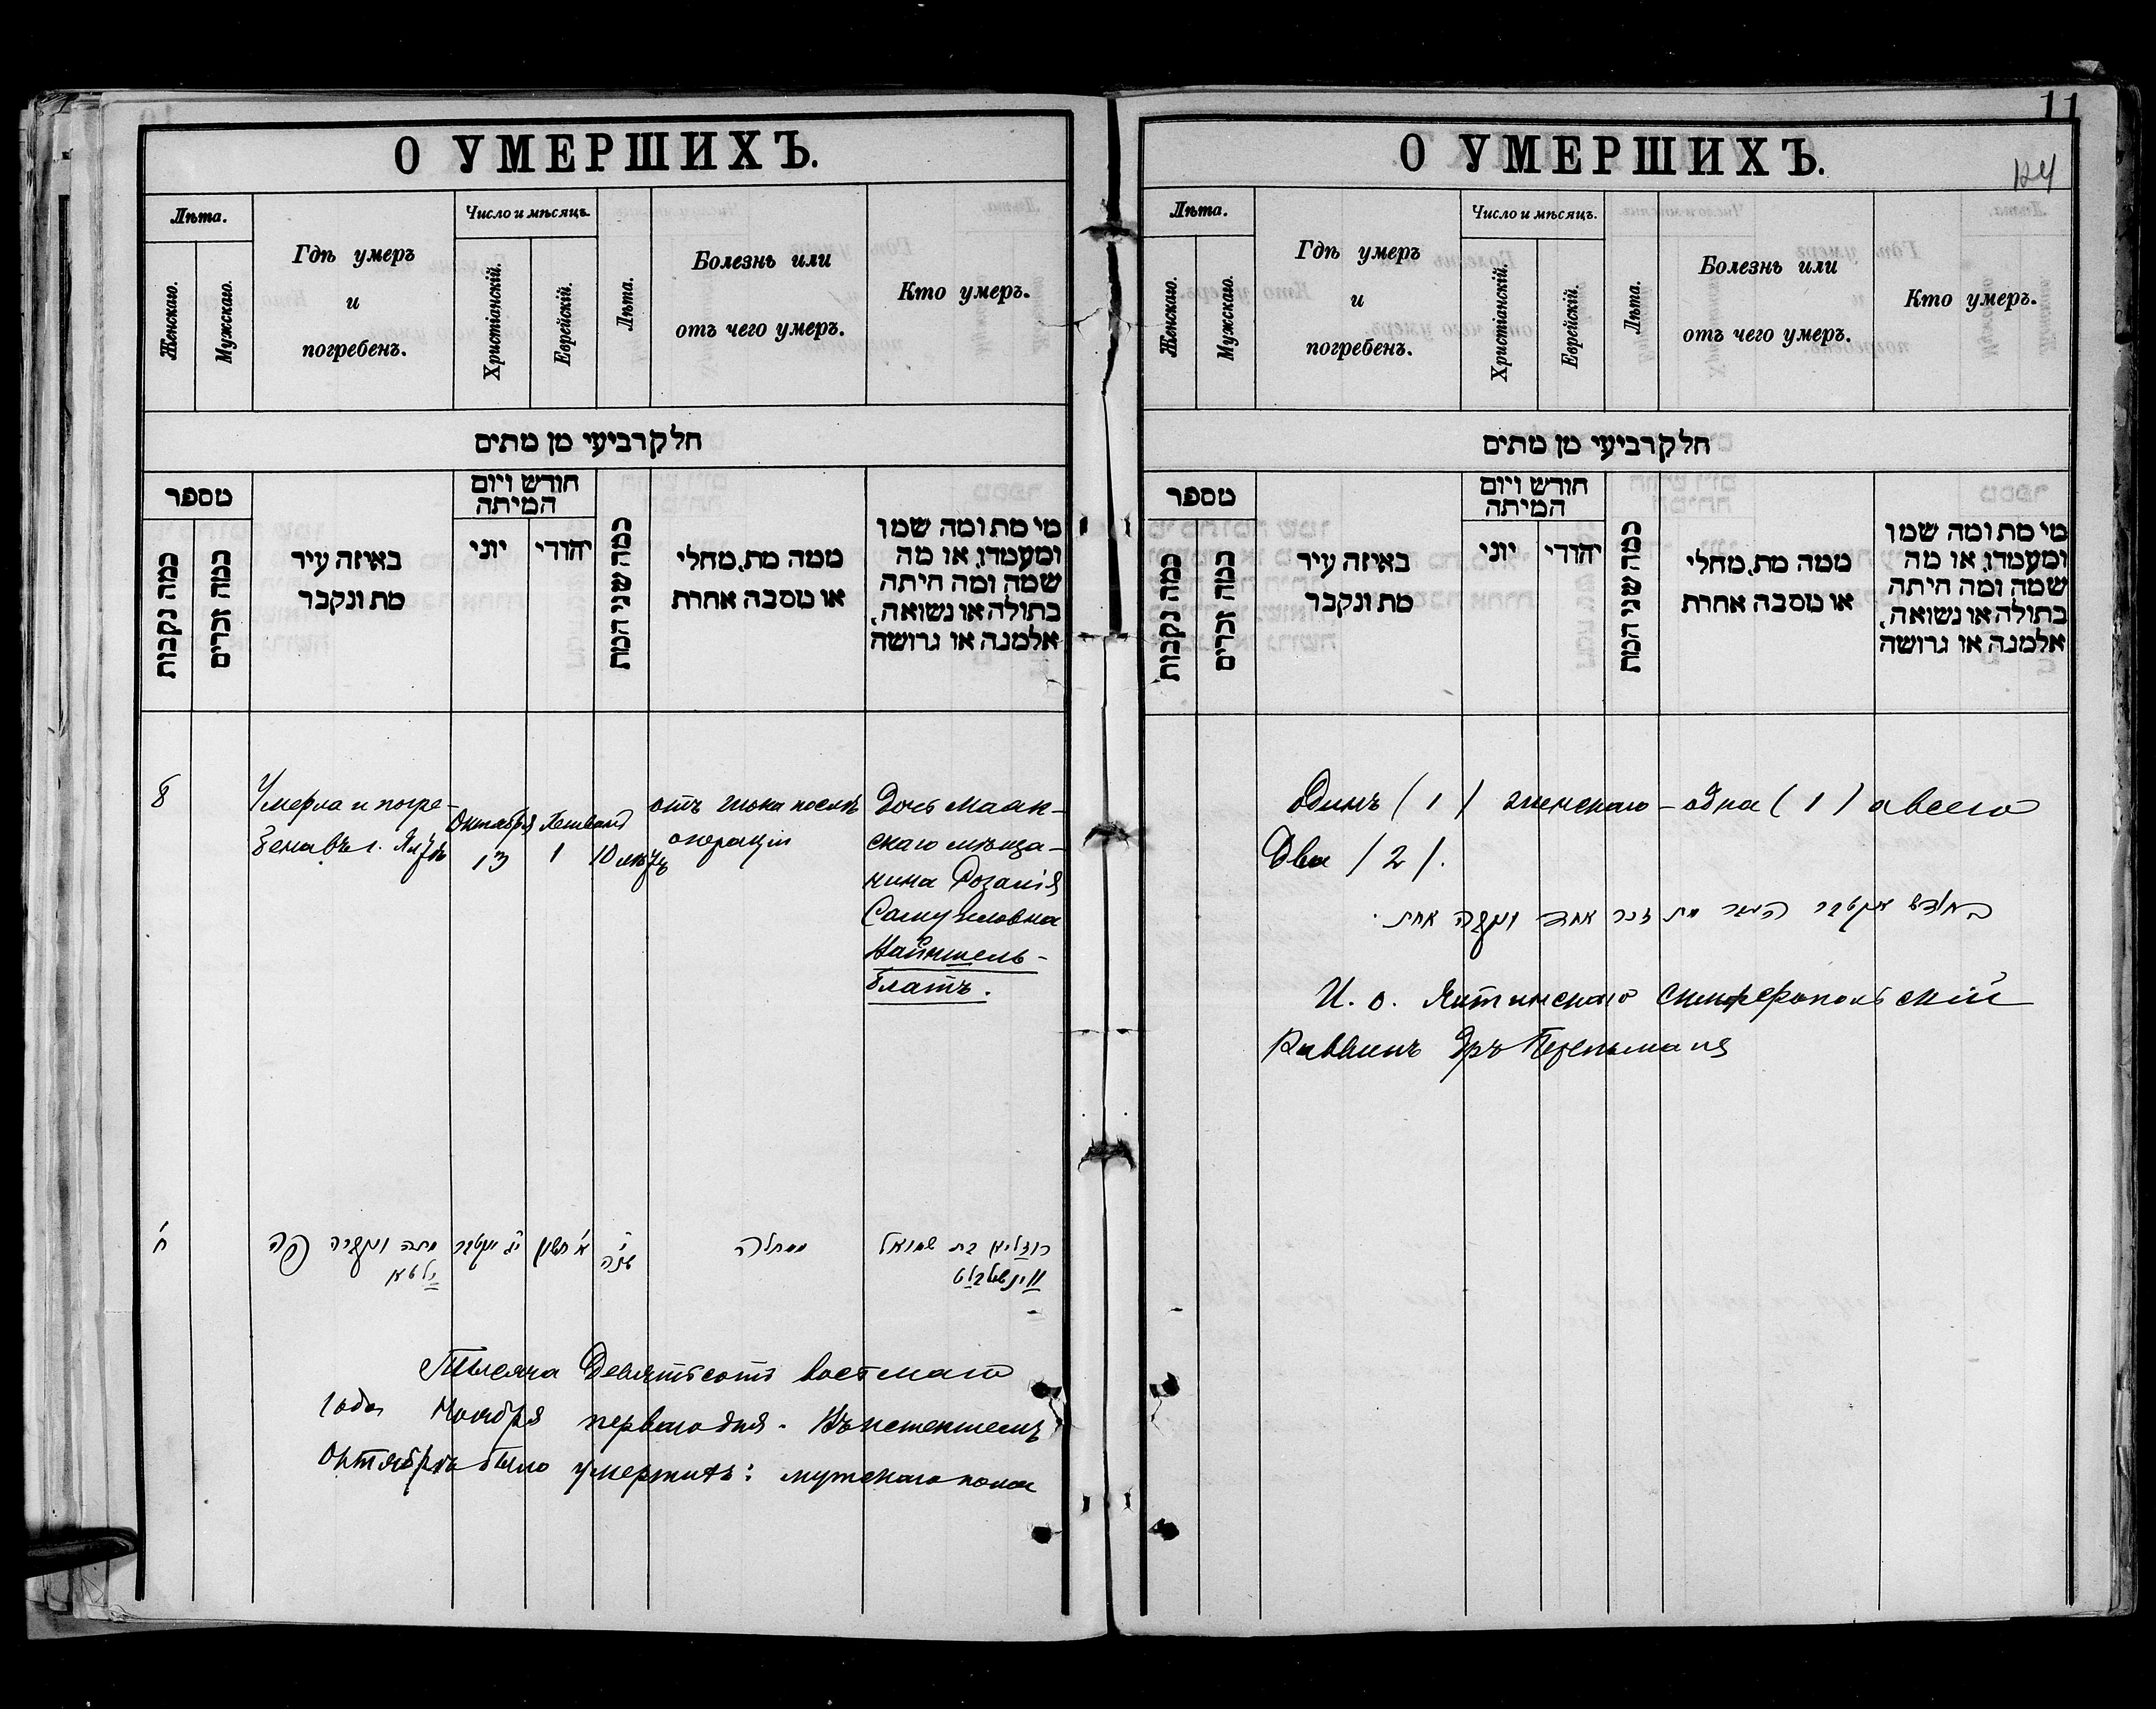 О УМЕРШИХЪ.
Лѣта.
Женскаго.
Мужскаго.
Гдѣ умеръ
и
погребенъ.
Число и мѣсяцъ.
Христіанскій.
Еврейскій.
Лѣта.
Болезнь или
отъ чего умеръ.
Кто умеръ.
חלק רביעי מן מתים
מספר
כמה נקבות
כמה זכרים
באיזה עיר
מת ונקבר
חודש ויום
המיתה
יוני
יהודי
כמה שני המת
ממה מת, מחלי
או מסבה אחרת
מי מת ומה שמו
ומעמדו, או מה
שמה ומה היתה
בתולה או נשואה,
אלמנה או גרושה
8
Умерла и погре-
бена въ г. Ялтѣ
Октября
13
Хешвана
1
10 лѣтъ
отъ шока послѣ
операціи
Дочь
скаго мѣща-
нина Розалія
Самуиловна
Вайншель-
блатъ.
ח'
מתה ונקברה פה
ילטא
יג אקטבר
א' חשון
י'
שנה
ממחלה
רוזליא בת שמואל
ווינשלבלט
Тысяча Девятьсотъ восьмаго
года Ноября перваго дня. Въ истекшемъ
Октябрѣ было умершихъ: мужскаго пола
11
О УМЕРШИХЪ.
Лѣта.
Женскаго.
Мужскаго.
Гдѣ умеръ
и
погребенъ.
Число и мѣсяцъ.
Христіанскій.
Еврейскій.
Лѣта.
Болезнь или
отъ чего умеръ.
Кто умеръ.
חלק רביעי מן מתים
מספר
כמה נקבות
כמה זכרים
באיזה עיר
מת ונקבר
חודש ויום
המיתה
יוני
יהודי
כמה שני המת
ממה מת, מחלי
או מסבה אחרת
מי מת ומה שמו
ומעמדו, או מה
שמה ומה היתה
בתולה או נשואה,
אלמנה או גרושה
Одинъ (1) женскаго – одна (1) а всего
Два /2/.
בחודש אקטבר העבר מת זכר אחד ונקבה אחת.
И. о. Ялтинскаго Симферопольскій
Раввинъ Дръ Перельманъ